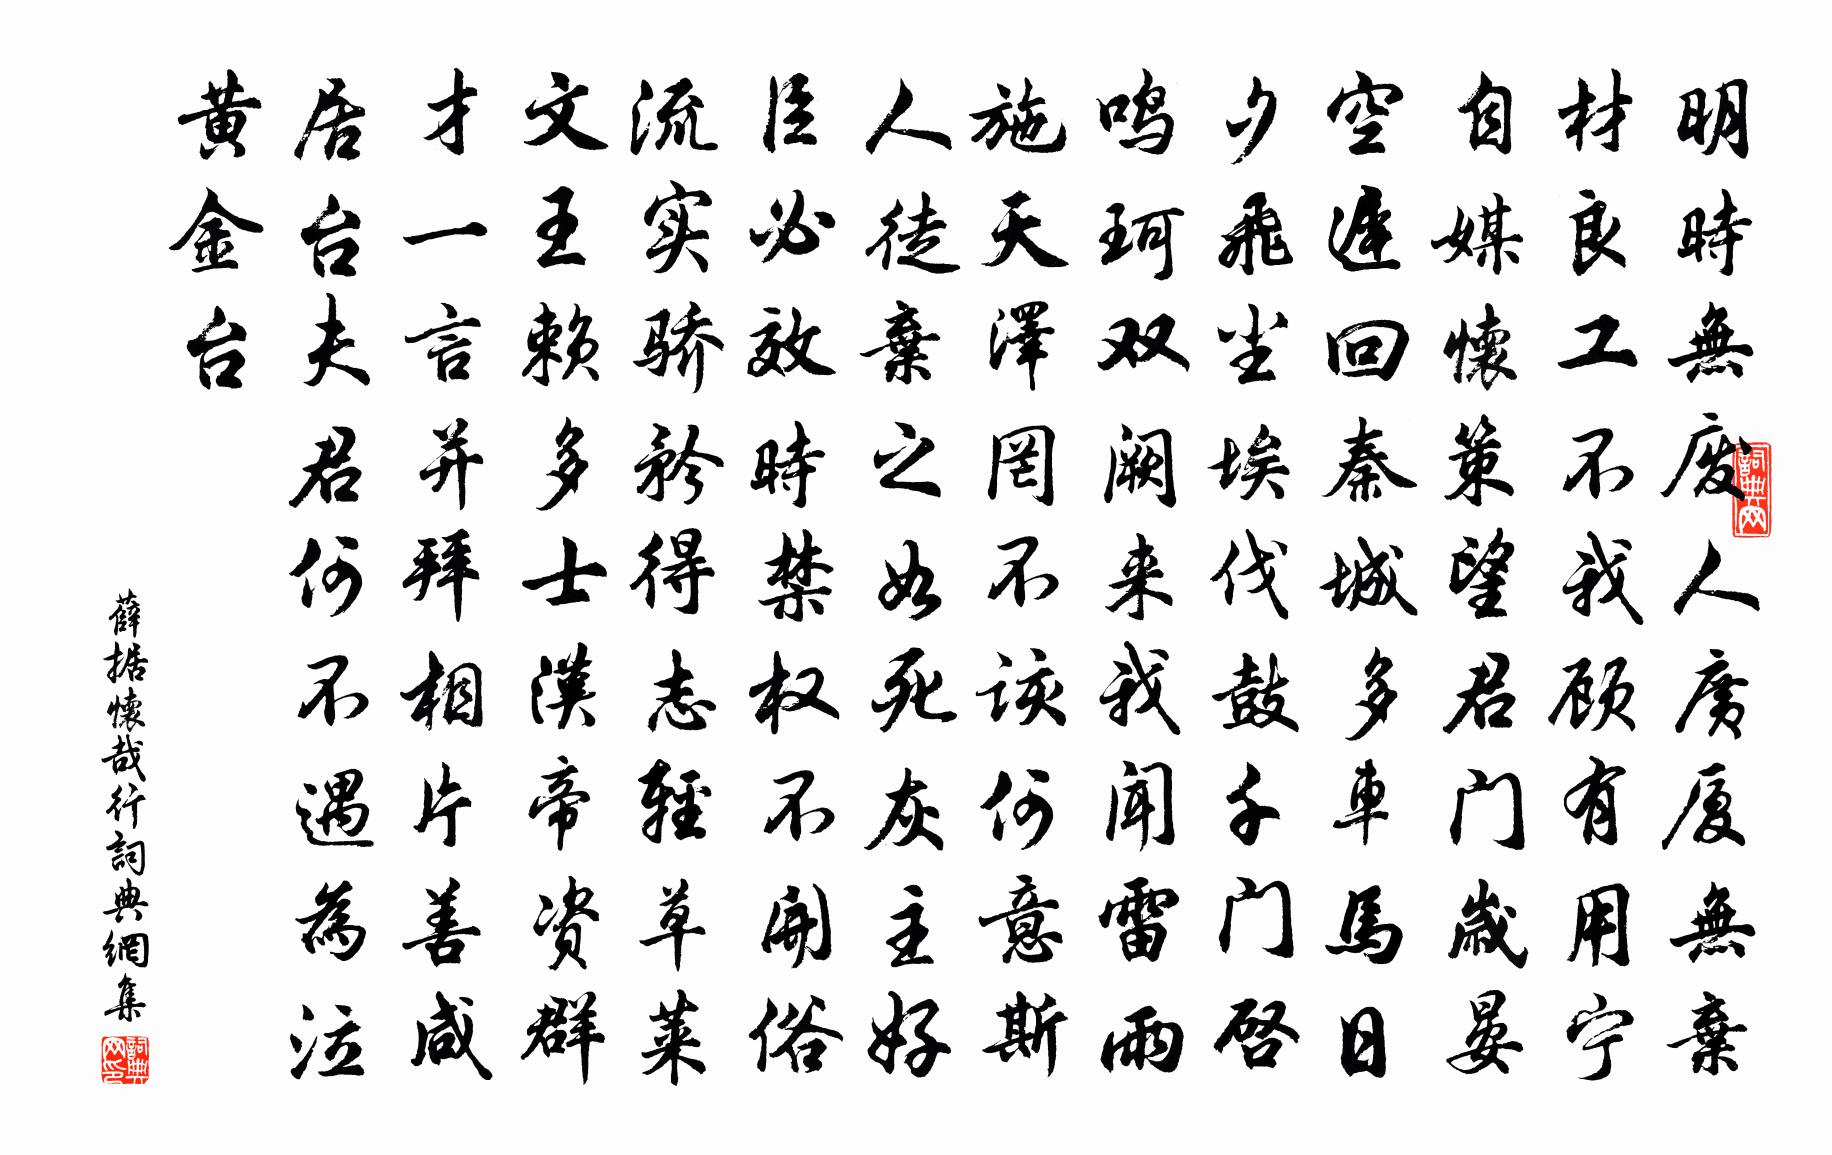 明時無废人廣厦無棄
材良工不我顾有用宁
自媒懷策望君门歲晏
空遲回秦城多車馬日
夕飛尘埃伐鼓千门启
鸣珂双阙来我闻雷雨
施天澤罔不该何意斯
人徒棄之如死灰主好
臣必效時禁权不開俗
流实骄矜得志輕草莱
文王赖多士漢帝资群
才一言并拜相片善咸
居台夫君何不遇為泣
黄金台
薛据懷哉行詞典網集
詞典网
詞典网印